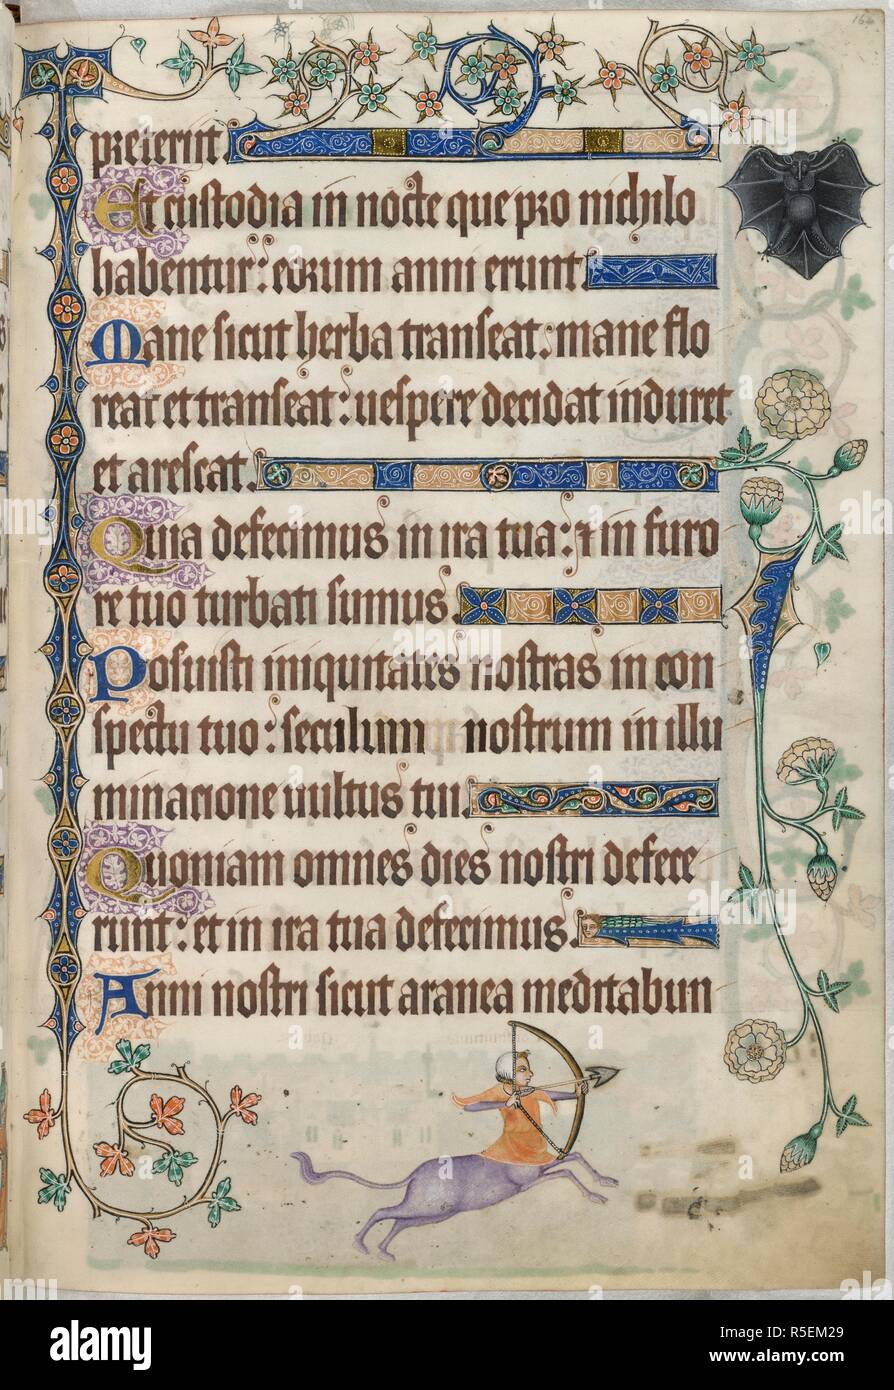 164
preterijt.
Et custodia in nocte que pro nichilo
habentur: eorum anni erunt.
Mane sicut herba transeat: mane flo
reat et transeat: uespere decidat induret
et arescat.
Quia defecimus in ira tua: ⁊ in furo
re tuo turbati sumus.
Posuisti iniquitates nostras in con
spectu tuo: seculum nostrum in illu
minacione uultus tui.
Quoniam omnes dies nostri defece
runt: et in ira tua defecimus.
Anni nostri sicut aranea meditabun
alamy
alamy
Image ID: R5EM29
www.alamy.com